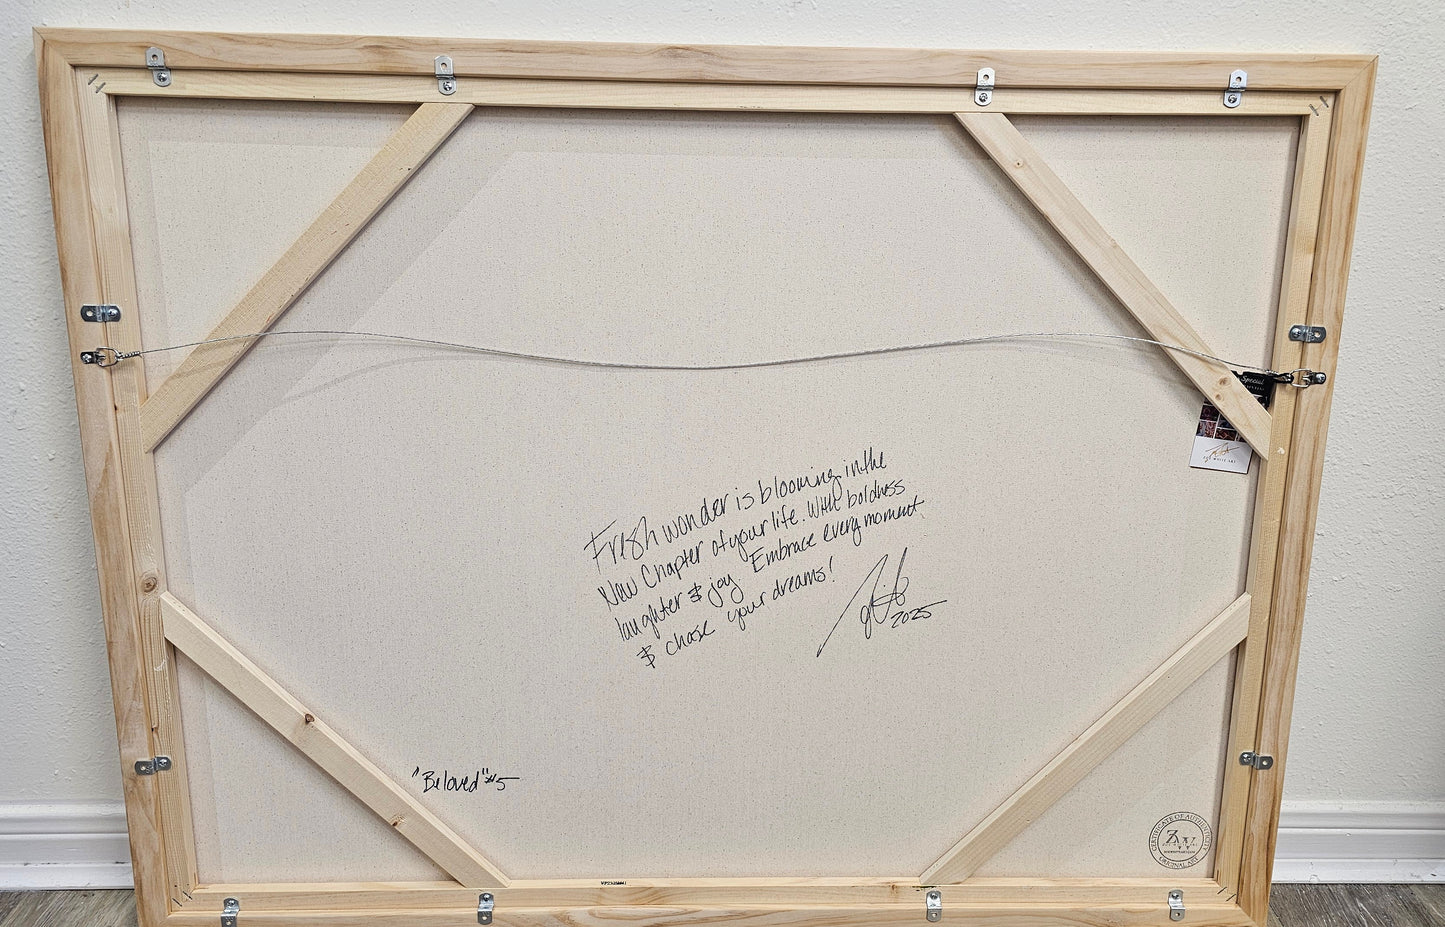 Special
Fresh wonder is blooming in the
New Chapter of your life. With boldness
laughter & joy. Embrace every moment
& chase your dreams!
2025
"Beloved" #5
CERTIFICATE OF AUTHENTICITY
ZW
ORIGINAL ART